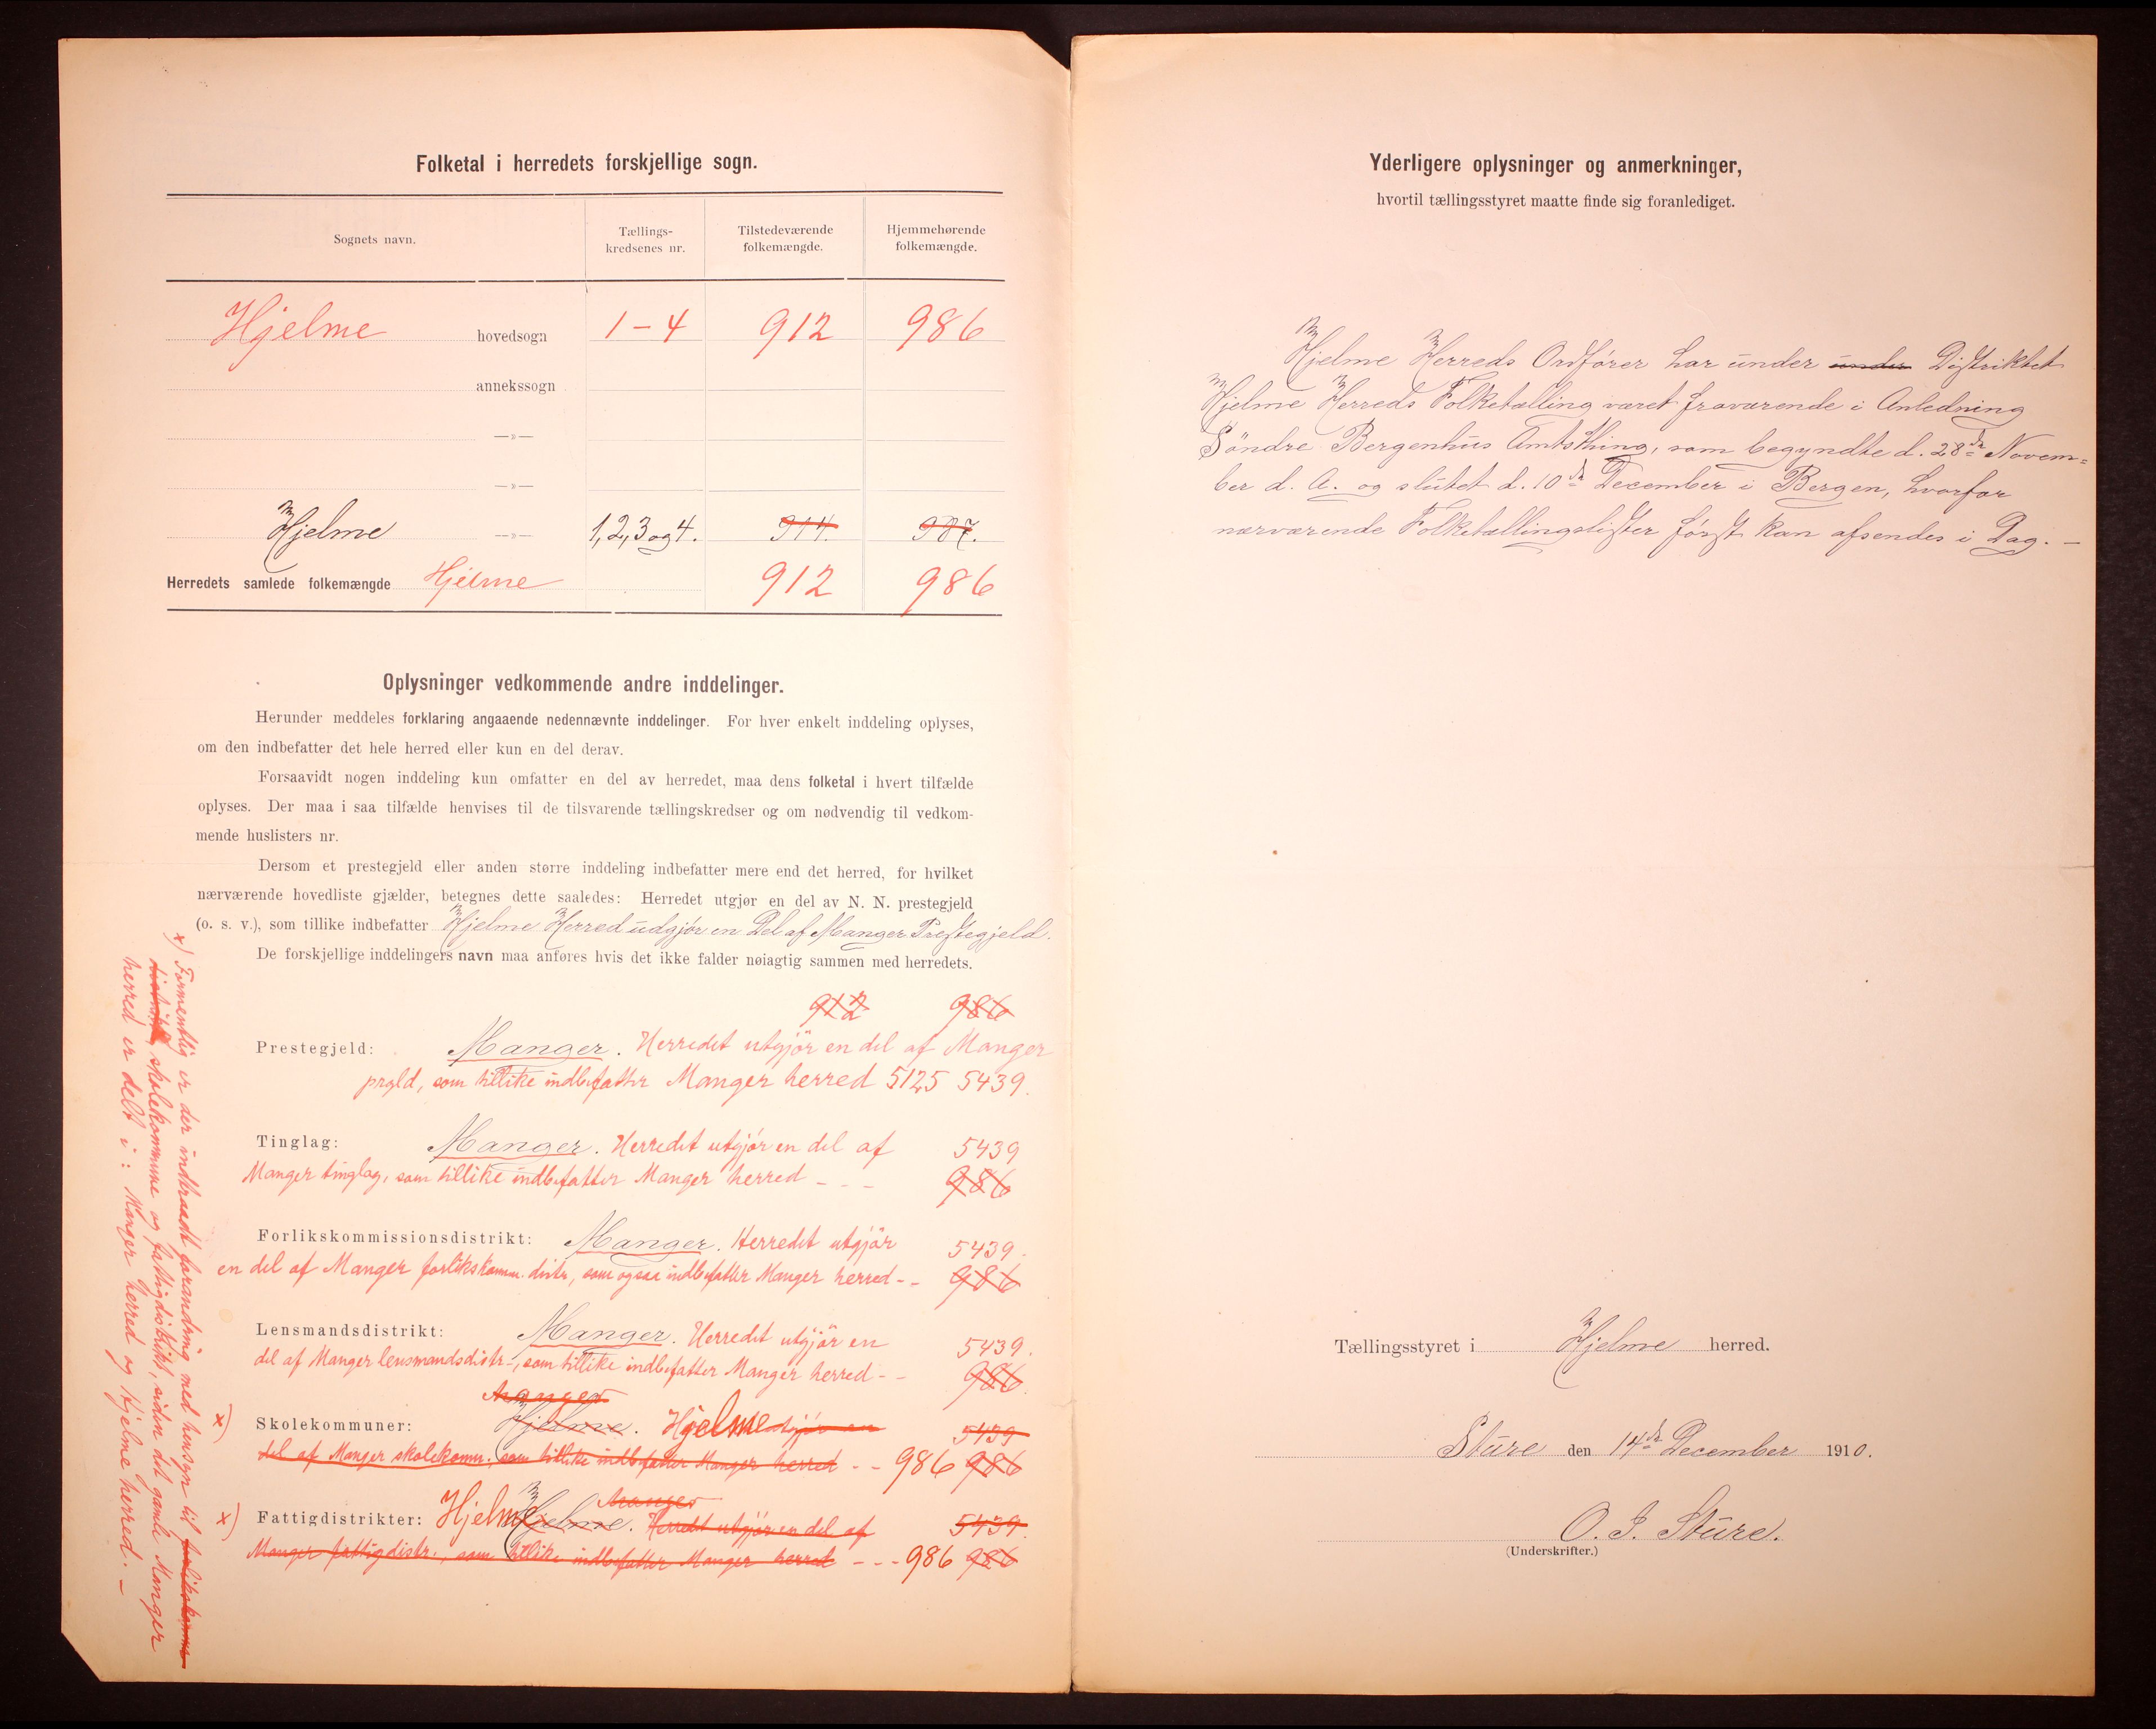 Folketal i herredets forskjellige sogn.
Sognets navn. Tællings-kredsenes nr. Tilstedeværende folkemængde. Hjemmehørende folkemængde.
Hjelme hovedsogn 1-4 912 986
annekssogn
—»—
—»—
Hjelme —»— 1, 2, 3 og 4. 914. 987.
Herredets samlede folkemængde Hjelme 912 986
Oplysninger vedkommende andre inddelinger.
Herunder meddeles forklaring angaaende nedennævnte inddelinger. For hver enkelt inddeling oplyses,
om den indbefatter det hele herred eller kun en del derav.
Forsaavidt nogen inddeling kun omfatter en del av herredet, maa dens folketal i hvert tilfælde
oplyses. Der maa i saa tilfælde henvises til de tilsvarende tællingskredser og om nødvendig til vedkom-
mende huslisters nr.
Dersom et prestegjeld eller anden større inddeling indbefatter mere end det herred, for hvilket
nærværende hovedliste gjælder, betegnes dette saaledes: Herredet utgjør en del av N. N. prestegjeld
(o. s. v.), som tillike indbefatter Hjelme Herred udgjør en Del af Manger Prestegjeld.
De forskjellige inddelingers navn maa anføres hvis det ikke falder nøiagtig sammen med herredets.
912 986
Prestegjeld: Manger. Herredet utgjör en del af Manger
prgld, som tillike indbefatter Manger herred 5125 5439.
Tinglag: Manger. Herredet utgjör en del af 5439
Manger tinglag, som tillike indbefatter Manger herred - - - 986
Forlikskommissionsdistrikt: Manger. Herredet utgjör 5439.
en del af Manger forlikskomm. distr., som ogsaa indbefatter Manger herred - - 986
Lensmandsdistrikt: Manger. Herredet utgjör en 5439.
del af Manger lensmandsdistr., som tillike indbefatter Manger herred - - 986
Manger
x) Skolekommuner: Hjelme. Hjelme utgjör en 5439
del af Manger skolekomm. som tillike indbefatter Manger herred - - 986 986
Manger
x) Fattigdistrikter: Hjelme Hjelme. Herredet utgjör en del af 5439
Manger fattigdistr., som tillike indbefatter Manger herred - - - 986 986
x) Formentlig er der indtraadt forandring med hensyn til forlikskomm
skolekommune og fattigdistrikt, siden det gamle Manger
herred er delt i: Manger herred og Hjelme herred. -
Yderligere oplysninger og anmerkninger,
hvortil tællingsstyret maatte finde sig foranlediget.
Hjelme Herreds Ordfører har under under Distriktet
Hjelme Herreds Folketælling været fraværende i Anledning
Söndre Bergenhus Amtsthing, som begyndte d. 28de Novem=
ber d. A. og slutet d. 10de December i Bergen, hvorfor
nærværende Folketællingslister først kan afsendes i Dag. —
Tællingsstyret i Hjelme herred.
Sture den 14de December 1910.
O. J. Sture.
(Underskrifter.)